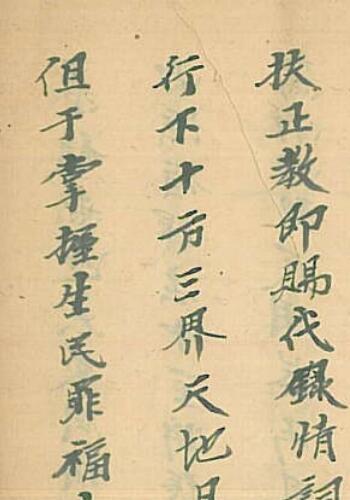 扶正教即賜代錄情詞
行下十方三界天地日
但于掌握生民罪福